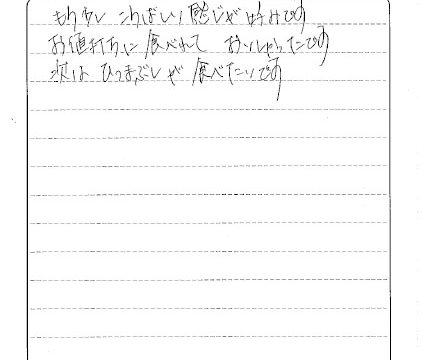 もう少し こうばしい感じが好みです
お値打ちに食べれて おいしかったです
次は ひつまぶしが食べたいです